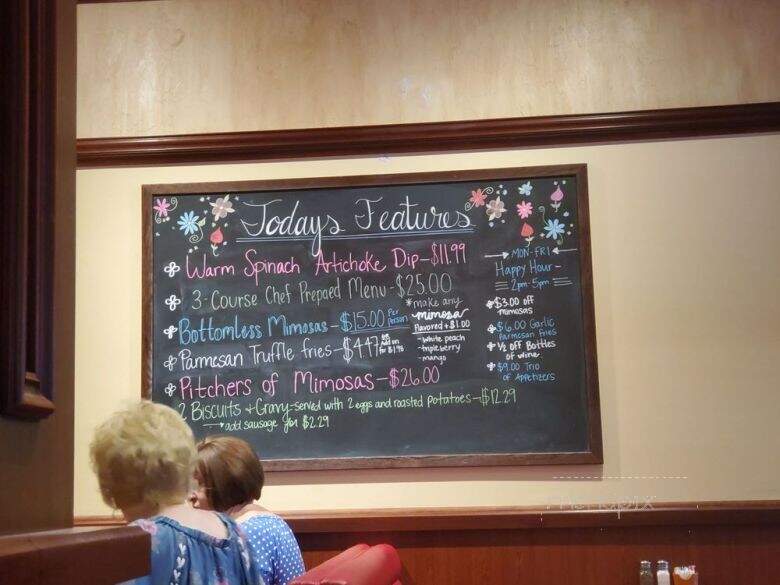 Todays Features
Warm Spinach Artichoke Dip-$11.99
3-Course Chef Prepaed Menu-$25.00
Bottomless Mimosas-$15.00 Per Person
Parmesan Truffle fries-$4.47 OR Add on for $1.98
Pitchers of Mimosas-$26.00
2 Biscuits + Gravy-served with 2 eggs and roasted potatoes-$12.29
add sausage for $2.29
*make any
mimosa
flavored +$1.00
-white peach
-triple berry
-mango
MON-FRI
Happy Hour-
2pm-5pm
$3.00 off
mimosas
$6.00 Garlic
Parmesan Fries
½ off Bottles
of wine
$9.00 Trio
of Appetizers